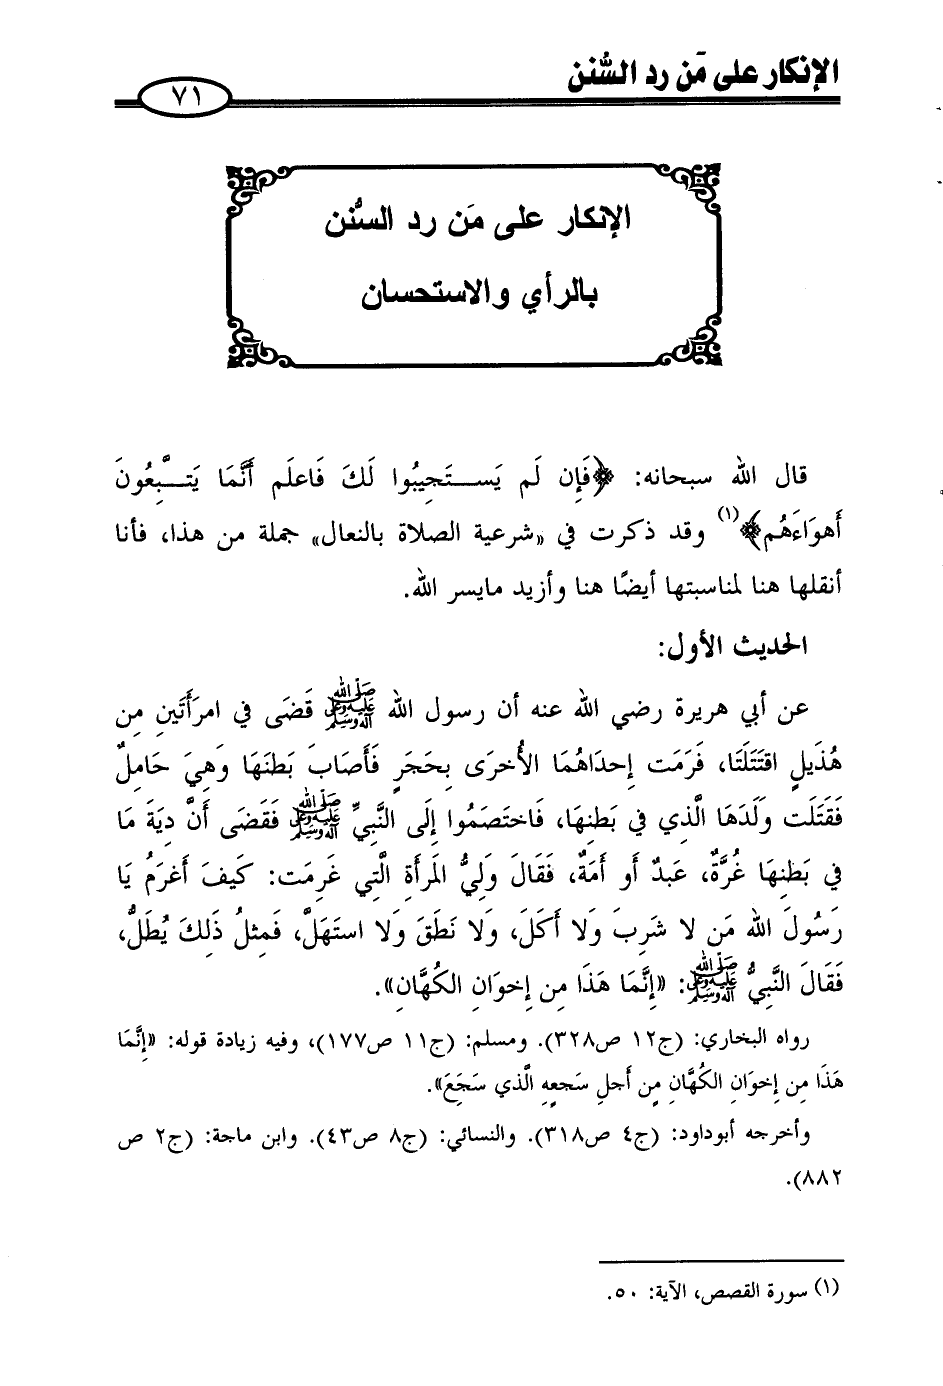 الإنكار على مَن رد السُّنن
٧١
الإنكار على مَن رد السُّنن
بالرأي والاستحسان
قال الله سبحانه: ﴿فَإِن لَم يَستَجِيبُوا لَكَ فَاعلَم أَنَّمَا يَتَّبِعُونَ
أَهوَاءَهُم﴾(١) وقد ذكرت في «شرعية الصلاة بالنعال» جملة من هذا، فأنا
أنقلها هنا لمناسبتها أيضًا هنا وأزيد مايسر الله.
الحديث الأول:
عن أبي هريرة رضي الله عنه أن رسول الله ﷺ قَضَى في امرَأَتَينِ مِن
هُذَيلٍ اقتَتَلَتَا، فَرَمَت إِحدَاهُمَا الأُخرَى بِحَجَرٍ فَأَصَابَ بَطنَهَا وَهِيَ حَامِلٌ
فَقَتَلَت وَلَدَهَا الَّذِي في بَطنِهَا، فَاختَصَمُوا إِلَى النَّبِيِّ ﷺ فَقَضَى أَنَّ دِيَةَ مَا
في بَطنِهَا غُرَّةٌ، عَبدٌ أَو أَمَةٌ، فَقَالَ وَلِيُّ المَرأَةِ الَّتِي غَرِمَت: كَيفَ أَغرَمُ يَا
رَسُولَ اللهِ مَن لا شَرِبَ وَلا أَكَلَ، وَلا نَطَقَ وَلا استَهَلَّ، فَمِثلُ ذَلِكَ يُطَلُّ،
فَقَالَ النَّبِيُّ ﷺ: «إِنَّمَا هَذَا مِن إِخوَانِ الكُهَّانِ».
رواه البخاري: (ج١٢ ص٣٢٨). ومسلم: (ج١١ ص١٧٧)، وفيه زيادة قوله: «إِنَّمَا
هَذَا مِن إِخوَانِ الكُهَّانِ مِن أَجلِ سَجعِهِ الَّذي سَجَعَ».
وأخرجه أبوداود: (ج٤ ص٣١٨). والنسائي: (ج٨ ص٤٣). وابن ماجة: (ج٢ ص
٨٨٢).
(١) سورة القصص، الآية: ٥٠.